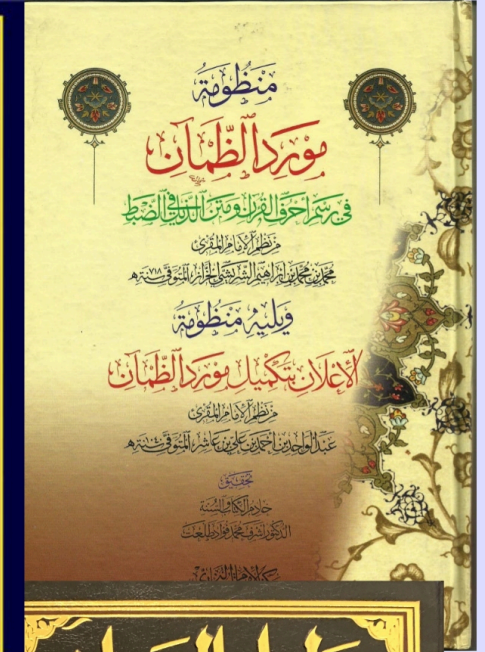 منظومة
مورد الظمآن
في رسم أحرف القرآن ومتن الذيل في الضبط
من نظم الإمام المقرئ
محمد بن محمد بن إبراهيم الشريشي الخراز المتوفى سنة ٧١٨ هـ
ويليه منظومة
الإعلان بتكميل مورد الظمآن
من نظم الإمام المقرئ
عبد الواحد بن أحمد بن علي بن عاشر المتوفى سنة ١٠٤٠ هـ
تحقيق
خادم الكتاب والسنة
الدكتور أشرف محمد فؤاد طلعت